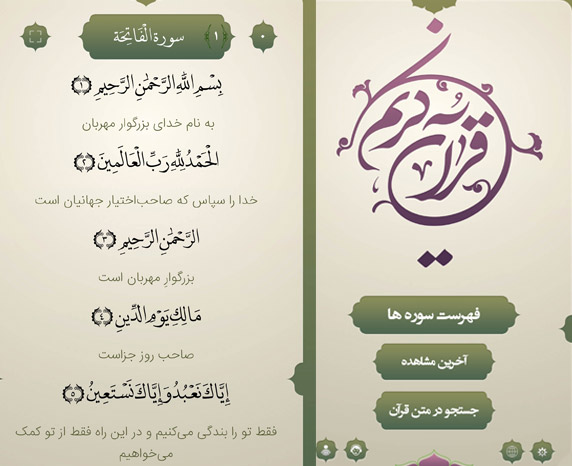 سورة الْفَاتِحَة ١ ٠
بِسْمِ اللَّهِ الرَّحْمَٰنِ الرَّحِيمِ ١
به نام خدای بزرگوار مهربان
الْحَمْدُ لِلَّهِ رَبِّ الْعَالَمِينَ ٢
خدا را سپاس که صاحب‌اختیار جهانیان است
الرَّحْمَٰنِ الرَّحِيمِ ٣
بزرگوارِ مهربان است
مَالِكِ يَوْمِ الدِّينِ ٤
صاحب روز جزاست
إِيَّاكَ نَعْبُدُ وَإِيَّاكَ نَسْتَعِينُ ٥
فقط تو را بندگی می‌کنیم و در این راه فقط از تو کمک
می‌خواهیم
قرآن کریم
فهرست سوره ها
آخرین مشاهده
جستجو در متن قرآن